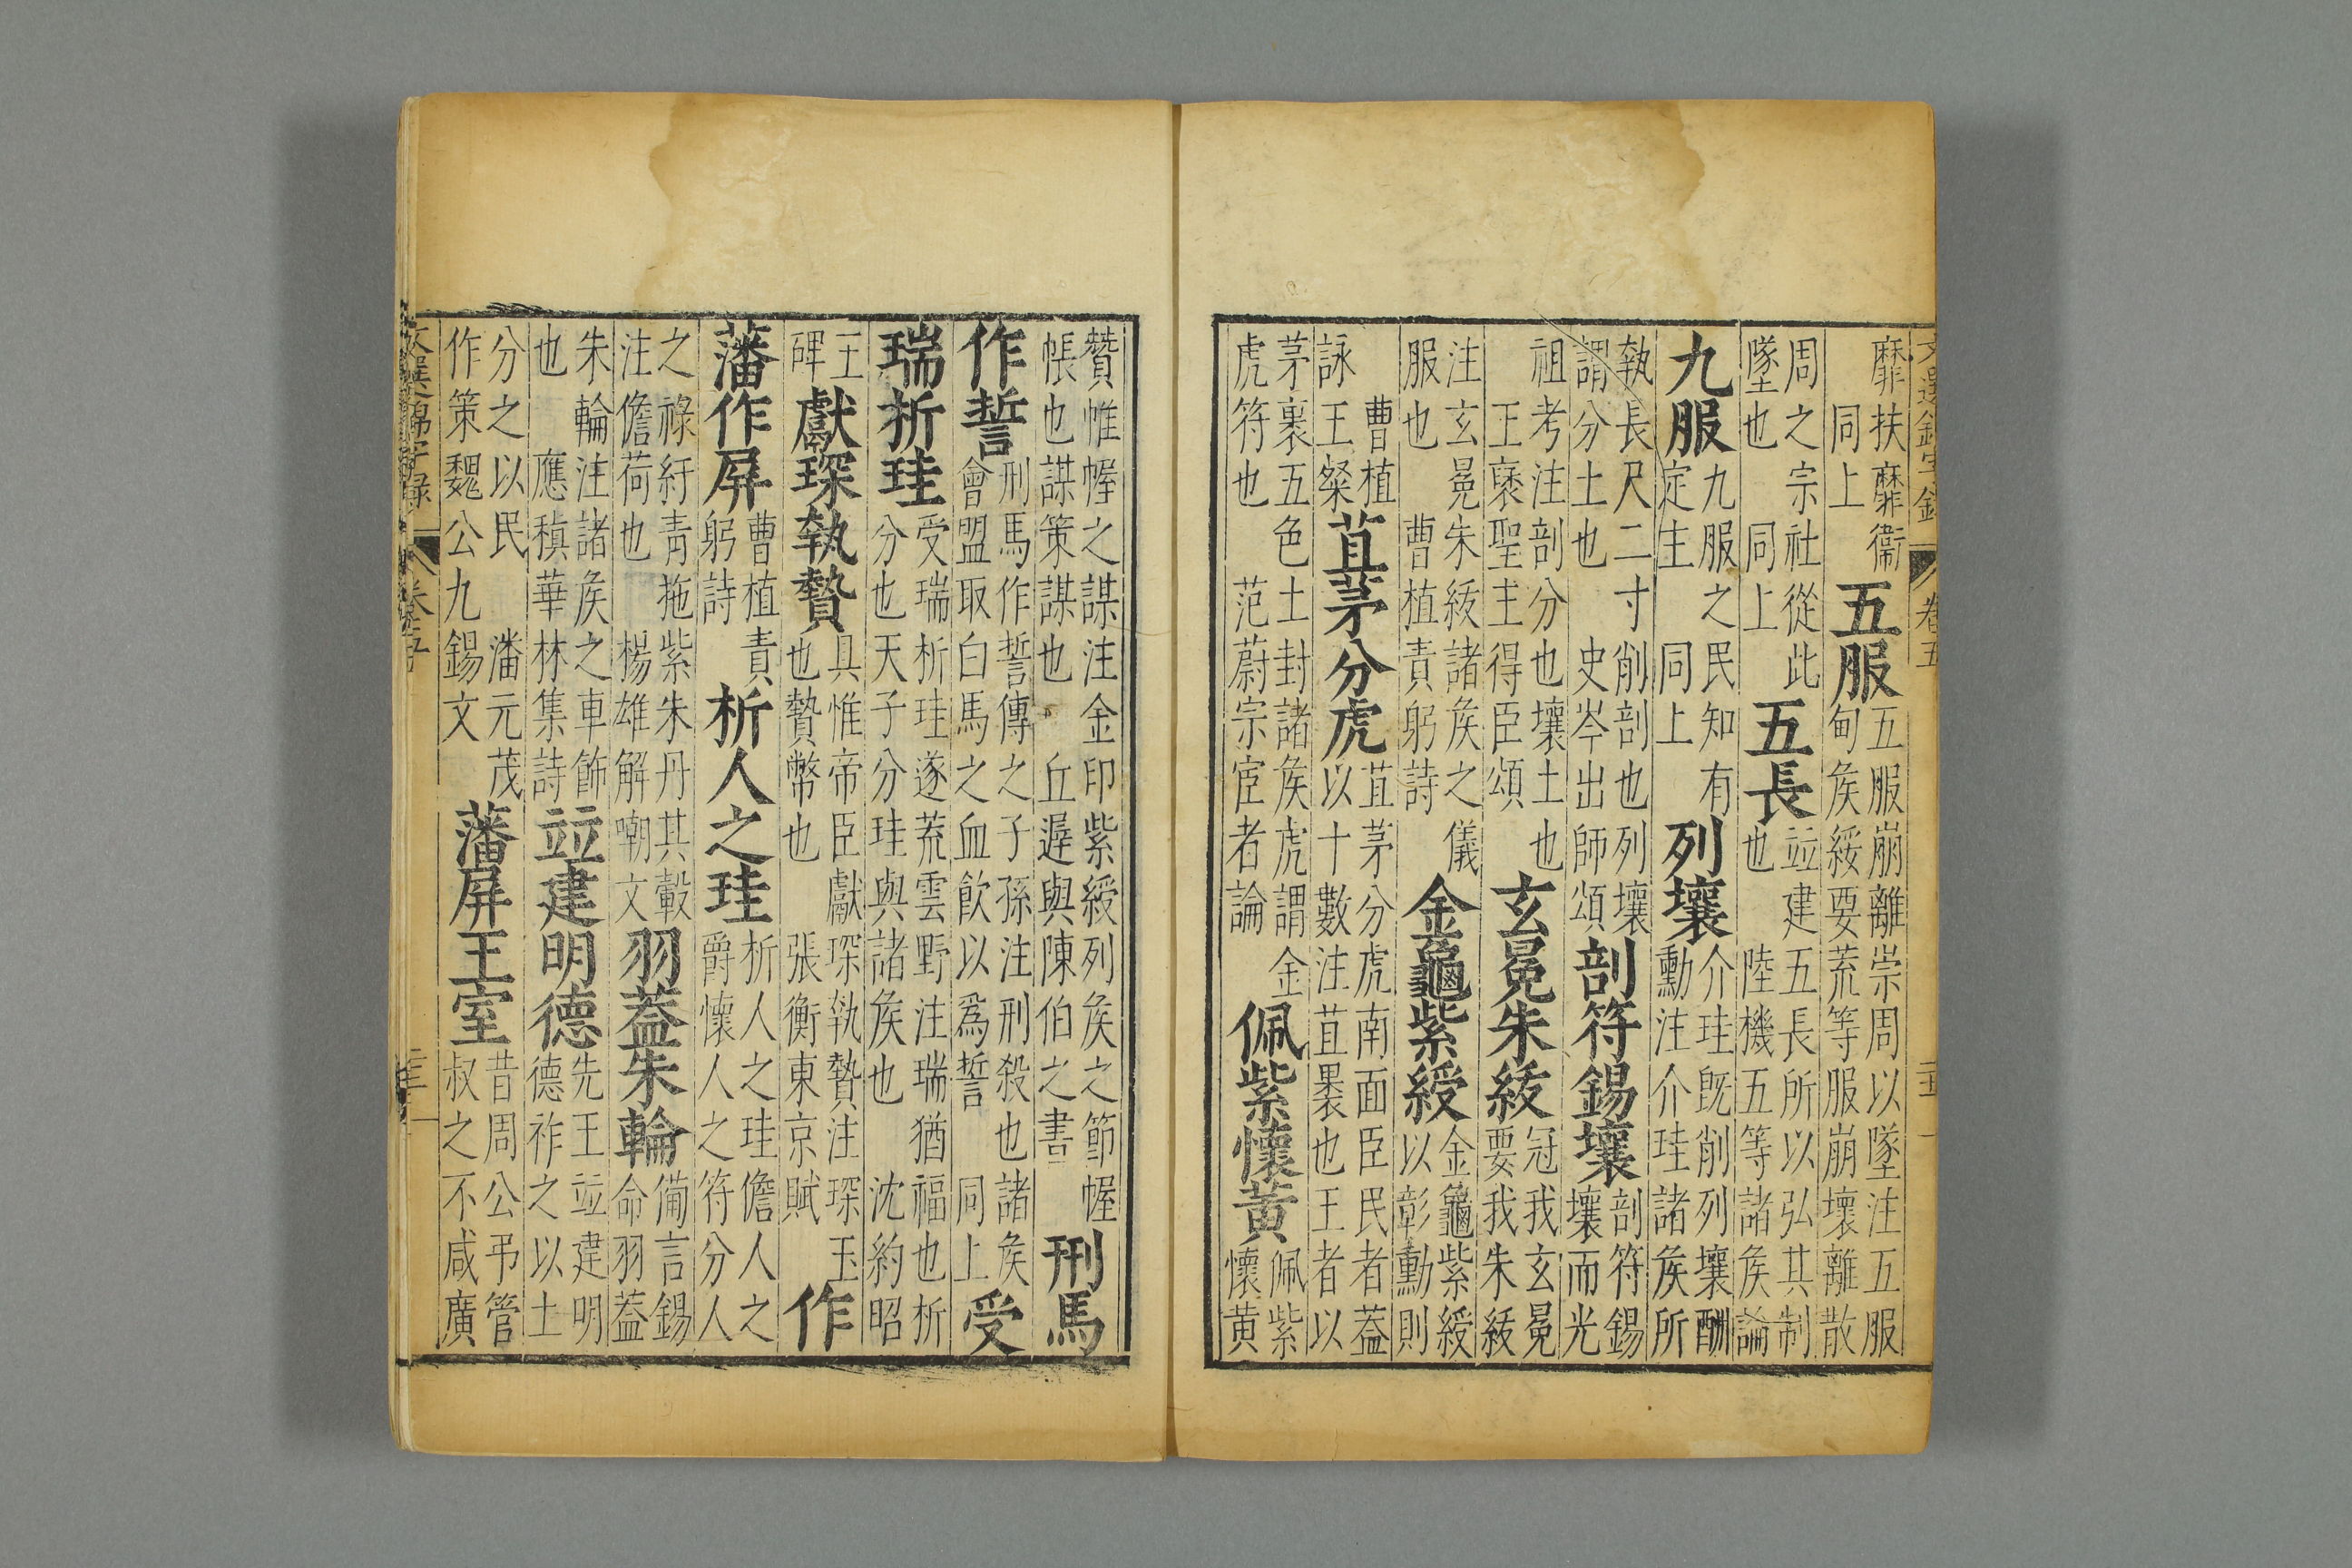 文選錦字錄 卷五
靡扶靡衞 同上 五服 五服崩離崇周以墜注五服甸矦綏要荒等服崩壞離散
周之宗社從此墜也 同上 五長 竝建五長所以弘其制也 陸機五等諸矦論
九服 九服之民知有定主 同上 列壤 介珪旣削列壤酬勳注介珪諸矦所
執長尺二寸削剖也列壤謂分土也 史岑出師頌 剖符錫壤 剖符錫壤而光
祖考注剖分也壤土也 王襃聖主得臣頌 玄冕朱紱 冠我玄冕要我朱紱
注玄冕朱紱諸矦之儀服也 曹植責躬詩 金龜紫綬 金龜紫綬以彰勳則
曹植詠王粲 苴茅分虎 苴茅分虎南面臣民者葢以十數注苴褁也王者以
茅裹五色土封諸矦虎謂金虎符也 范蔚宗宦者論 佩紫懷黃 佩紫懷黃
贊惟幄之謀注金印紫綬列矦之節幄帳也謀策謀也 丘遲與陳伯之書 刑馬
作誓 刑馬作誓傳之子孫注刑殺也諸矦會盟取白馬之血飮以爲誓 同上 受
瑞折珪 受瑞析珪遂荒雲野注瑞猶福也析分也天子分珪與諸矦也 沈約昭
王碑 獻琛執贄 具惟帝臣獻琛執贄注琛玉也贄幣也 張衡東京賦 作
藩作屏 曹植責躬詩 析人之珪 析人之珪儋人之爵懷人之符分人
之祿紆靑拖紫朱丹其轂注儋荷也 楊雄解嘲文 羽葢朱輪 備言錫命羽葢
朱輪注諸矦之車飾也 應稹華林集詩 竝建明德 先王竝建明德祚之以土
分之以民 潘元茂作策魏公九錫文 藩屏王室 昔周公弔管叔之不咸廣
文選錦字錄 卷五